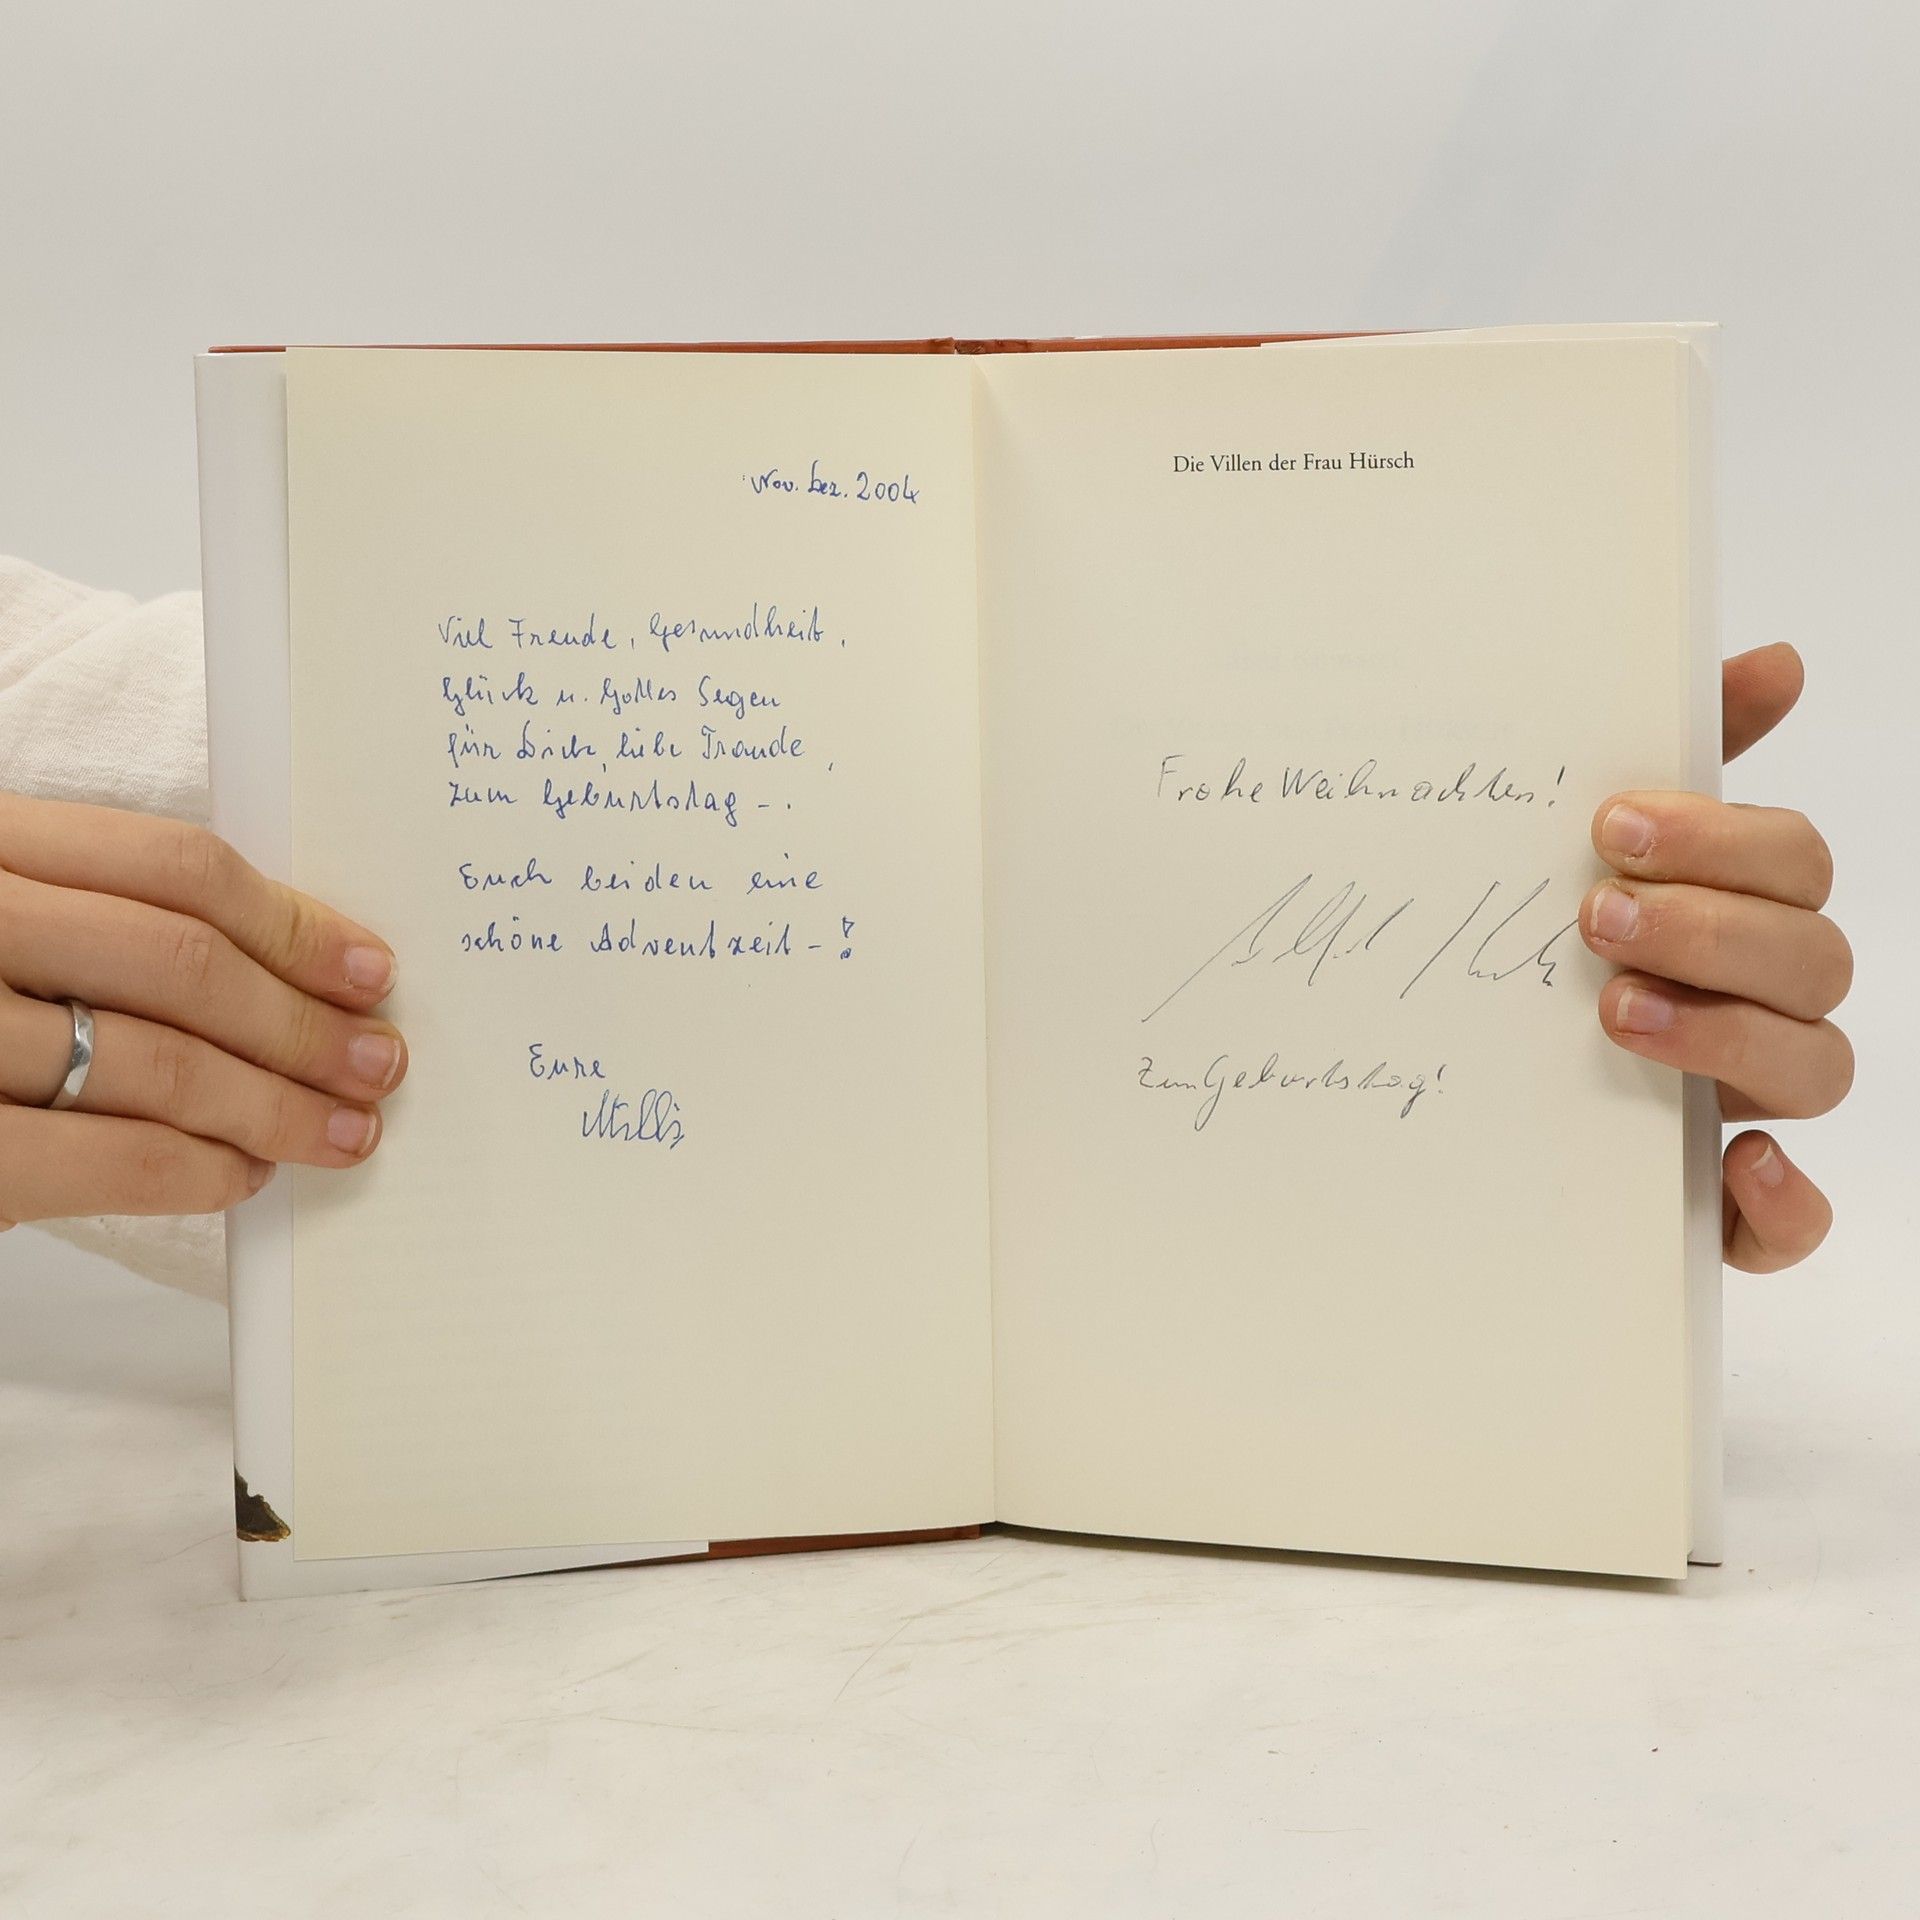 Nov. Dez. 2004
Viel Freude, Gesundheit,
Glück u. Gottes Segen
für Dich, liebe Traude,
zum Geburtstag - .
Euch beiden eine
schöne Adventzeit - !
Eure
Die Villen der Frau Hürsch
Frohe Weihnachten!
Zum Geburtstag!